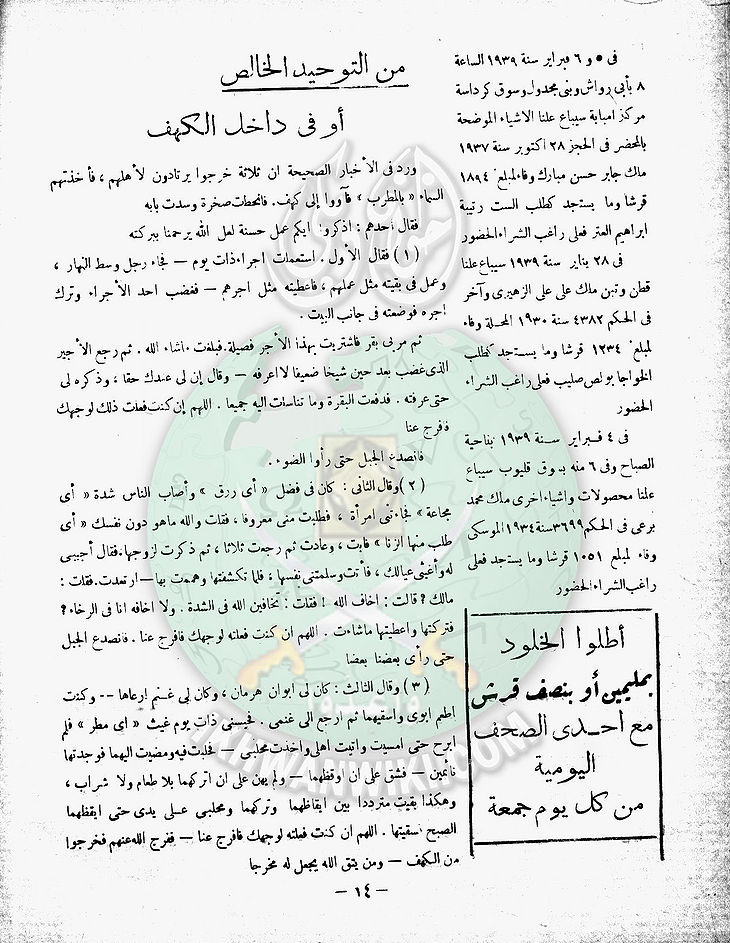 فى ٥ و ٦ فبراير سنة ١٩٣٩ الساعة
٨ بأبي رواش وبنى مجدول وسوق كرداسة
مركز امبابة سيباع علنا الاشياء الموضحة
بالمحضر فى الحجز ٢٨ اكتوبر سنة ١٩٣٧
ملك جابر حسن مبارك وفاء لمبلغ ١٨٩٤
قرشا وما يستجد كطلب الست رتيبة
ابراهيم العتر فعلى راغب الشراء الحضور
فى ٢٨ يناير سنة ١٩٣٩ سيباع علنا
قطن وتبن ملك على على الزهيرى وآخر
فى الحكم ٤٣٨٢ سنة ١٩٣٠ المحلة وفاء
لمبلغ ١٢٣٤ قرشا وما يستجد كطلب
الخواجا بولص صليب فعلى راغب الشراء
الحضور
فى ٤ فبراير سنة ١٩٣٩ بناحية
الصباح وفى ٦ منه بسوق قليوب سيباع
علنا محصولات واشياء اخرى ملك محمد
برعى فى الحكم ٣٦٩٩ سنة ١٩٣٤ الموسكى
وفاء لمبلغ ١٠٥١ قرشا وما يستجد فعلى
راغب الشراء الحضور
أطلوا الخلود
بمليمين أو بنصف قرش
مع احدى الصحف
اليومية
من كل يوم جمعة
من التوحيد الخالص
أو فى داخل الكهف
ورد فى الأخبار الصحيحة ان ثلاثة خرجوا يرتادون لأهلهم ، فأخذتهم
السماء « بالمطرب » فآووا إلى كهف . فانحطت صخرة وسدت بابه
فقال احدهم : اذكروا ايكم عمل حسنة لعل الله يرحمنا ببركته
( ١ ) فقال الأول . استعملت اجراء ذات يوم — فجاء رجل وسط النهار ،
وعمل فى بقيته مثل عملهم ، فاعطيته مثل اجرهم — فغضب احد الأجراء وترك
اجره فوضعته فى جانب البيت .
ثم مر بى بقر فاشتريت بهذا الأجر فصيلة . فبلغت ماشاء الله . ثم رجع الأجير
الذى غضب بعد حين شيخا ضعيفا لا اعرفه — وقال إن لى عندك حقا ، وذكره لى
حتى عرفته . فدفعت البقرة وما تناسلت اليه جميعا . اللهم إن كنت فعلت ذلك لوجهك
فافرج عنا
فانصدع الجبل حتى رأوا الضوء .
( ٢ ) وقال الثانى : كان فى فضل « أى رزق » وأصاب الناس شدة « أى
مجاعة » فجاءتنى امرأة ، فطلبت منى معروفا ، فقلت والله ماهو دون نفسك « أى
طلب منها الزنا » فابت ، وعادت ثم رجعت ثلاثا ، ثم ذكرت لزوجها ، فقال أجيبى
له وأغيثى عيالك ، فأتت وسلمتنى نفسها ، فلما تكشفتها وهممت بها — ارتعدت . فقلت :
مالك ؟ قالت : اخاف الله ! فقلت : تخافين الله فى الشدة . ولا اخافه انا فى الرخاء ؟
فتركتها واعطيتها ماشاءت . اللهم ان كنت فعلته لوجهك فافرج عنا . فانصدع الجبل
حتى رأى بعضنا بعضا
( ٣ ) وقال الثالث : كان لى ابوان هرمان ، وكان لى غنم ارعاها -- وكنت
اطعم ابوى واسقيهما ثم ارجع الى غنمى . فحبسنى ذات يوم غيث « اى مطر » فلم
ابرح حتى امسيت واتيت اهلى واخذت محلبى — فحلبت فيه ومضيت اليهما فوجدتها
نائمين — فشق على ان اوقظهما — ولم يهن على ان اتركهما بلا طعام ولا شراب ،
وهكذا بقيت مترددا بين ايقاظهما وتركهما ومحلبى على يدى حتى ايقظهما
الصبح اسقيتها . اللهم ان كنت فعلته لوجهك فافرج عنا — ففرج الله عنهم فخرجوا
من الكهف — ومن يتق الله يجعل له مخرجا
— ١٤ —
IKHWANWIKI.COM